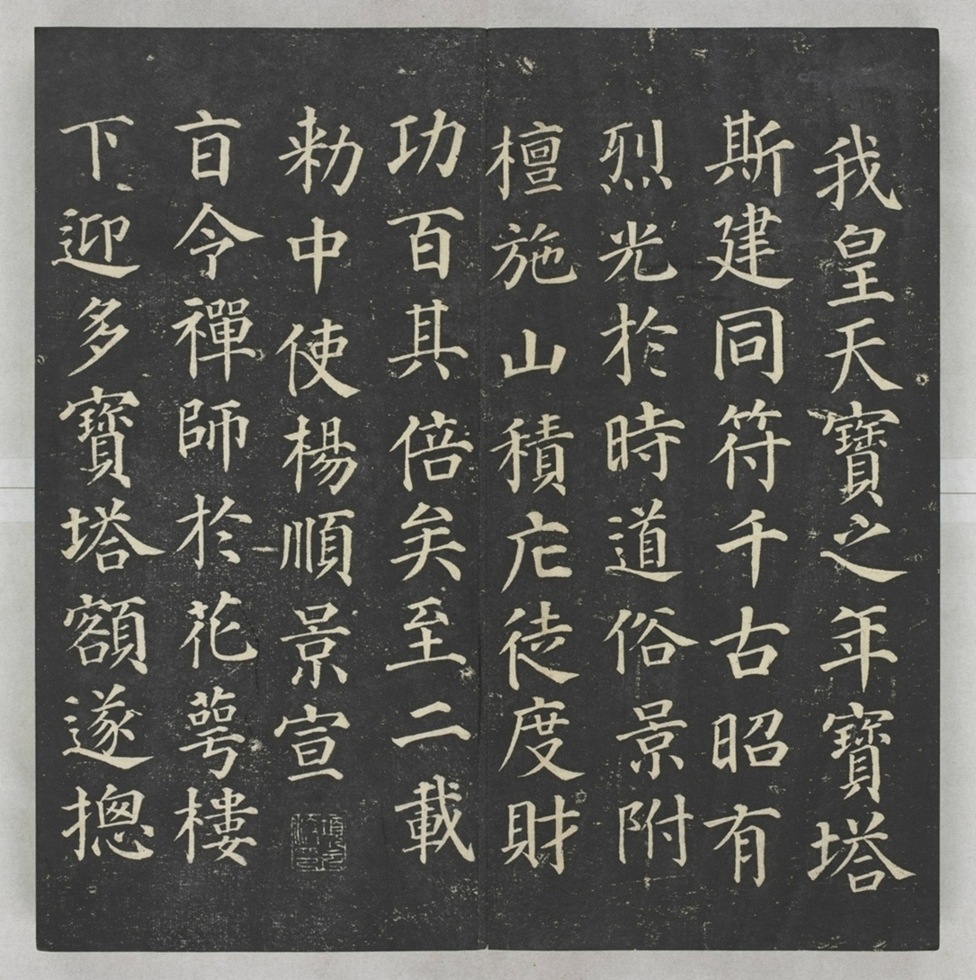 我皇天寶之年寶塔
斯建同符千古昭有
烈光於時道俗景附
檀施山積庀徒度財
功百其倍矣至二載
勅中使楊順景宣
㫖令禪師於花萼樓
下迎多寶塔額遂摠